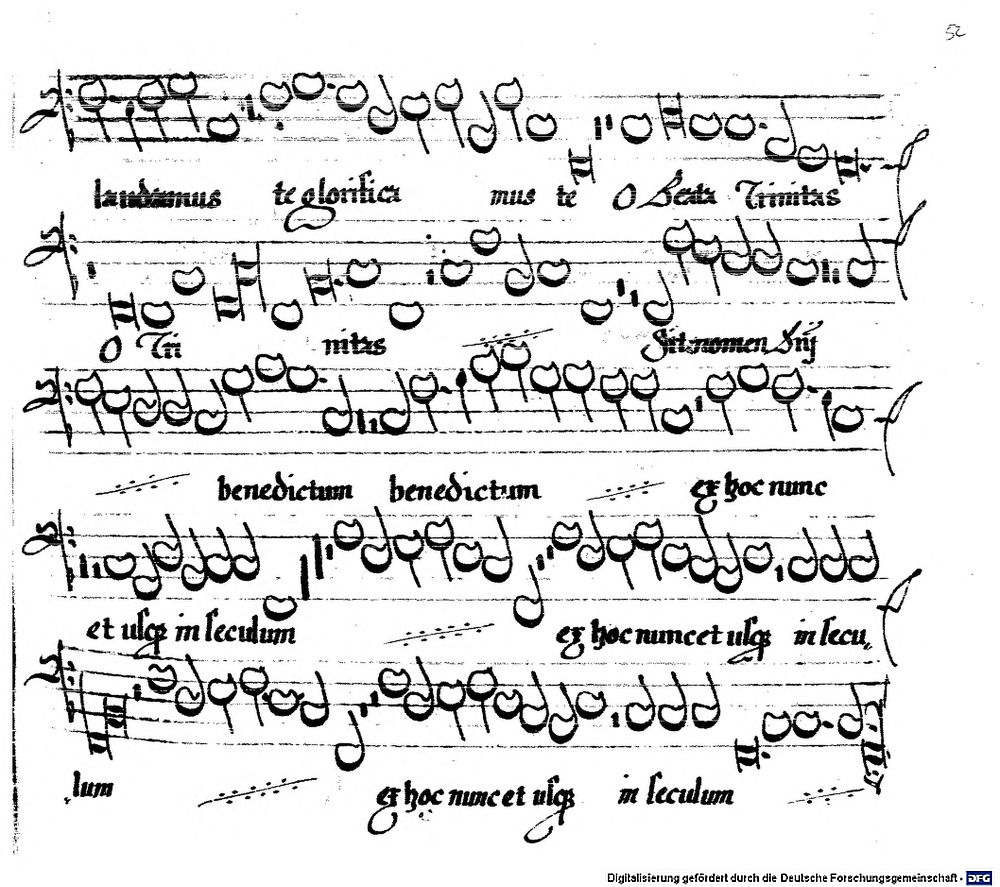 52
laudamus te glorifica mus te O Beata Trinitas
O Tri nitas Sit nomen Dnj
benedictum benedictum ex hoc nunc
et usqz in seculum ex hoc nunc et usqz in secu
lum ex hoc nunc et usqz in seculum
Digitalisierung gefördert durch die Deutsche Forschungsgemeinschaft - DFG